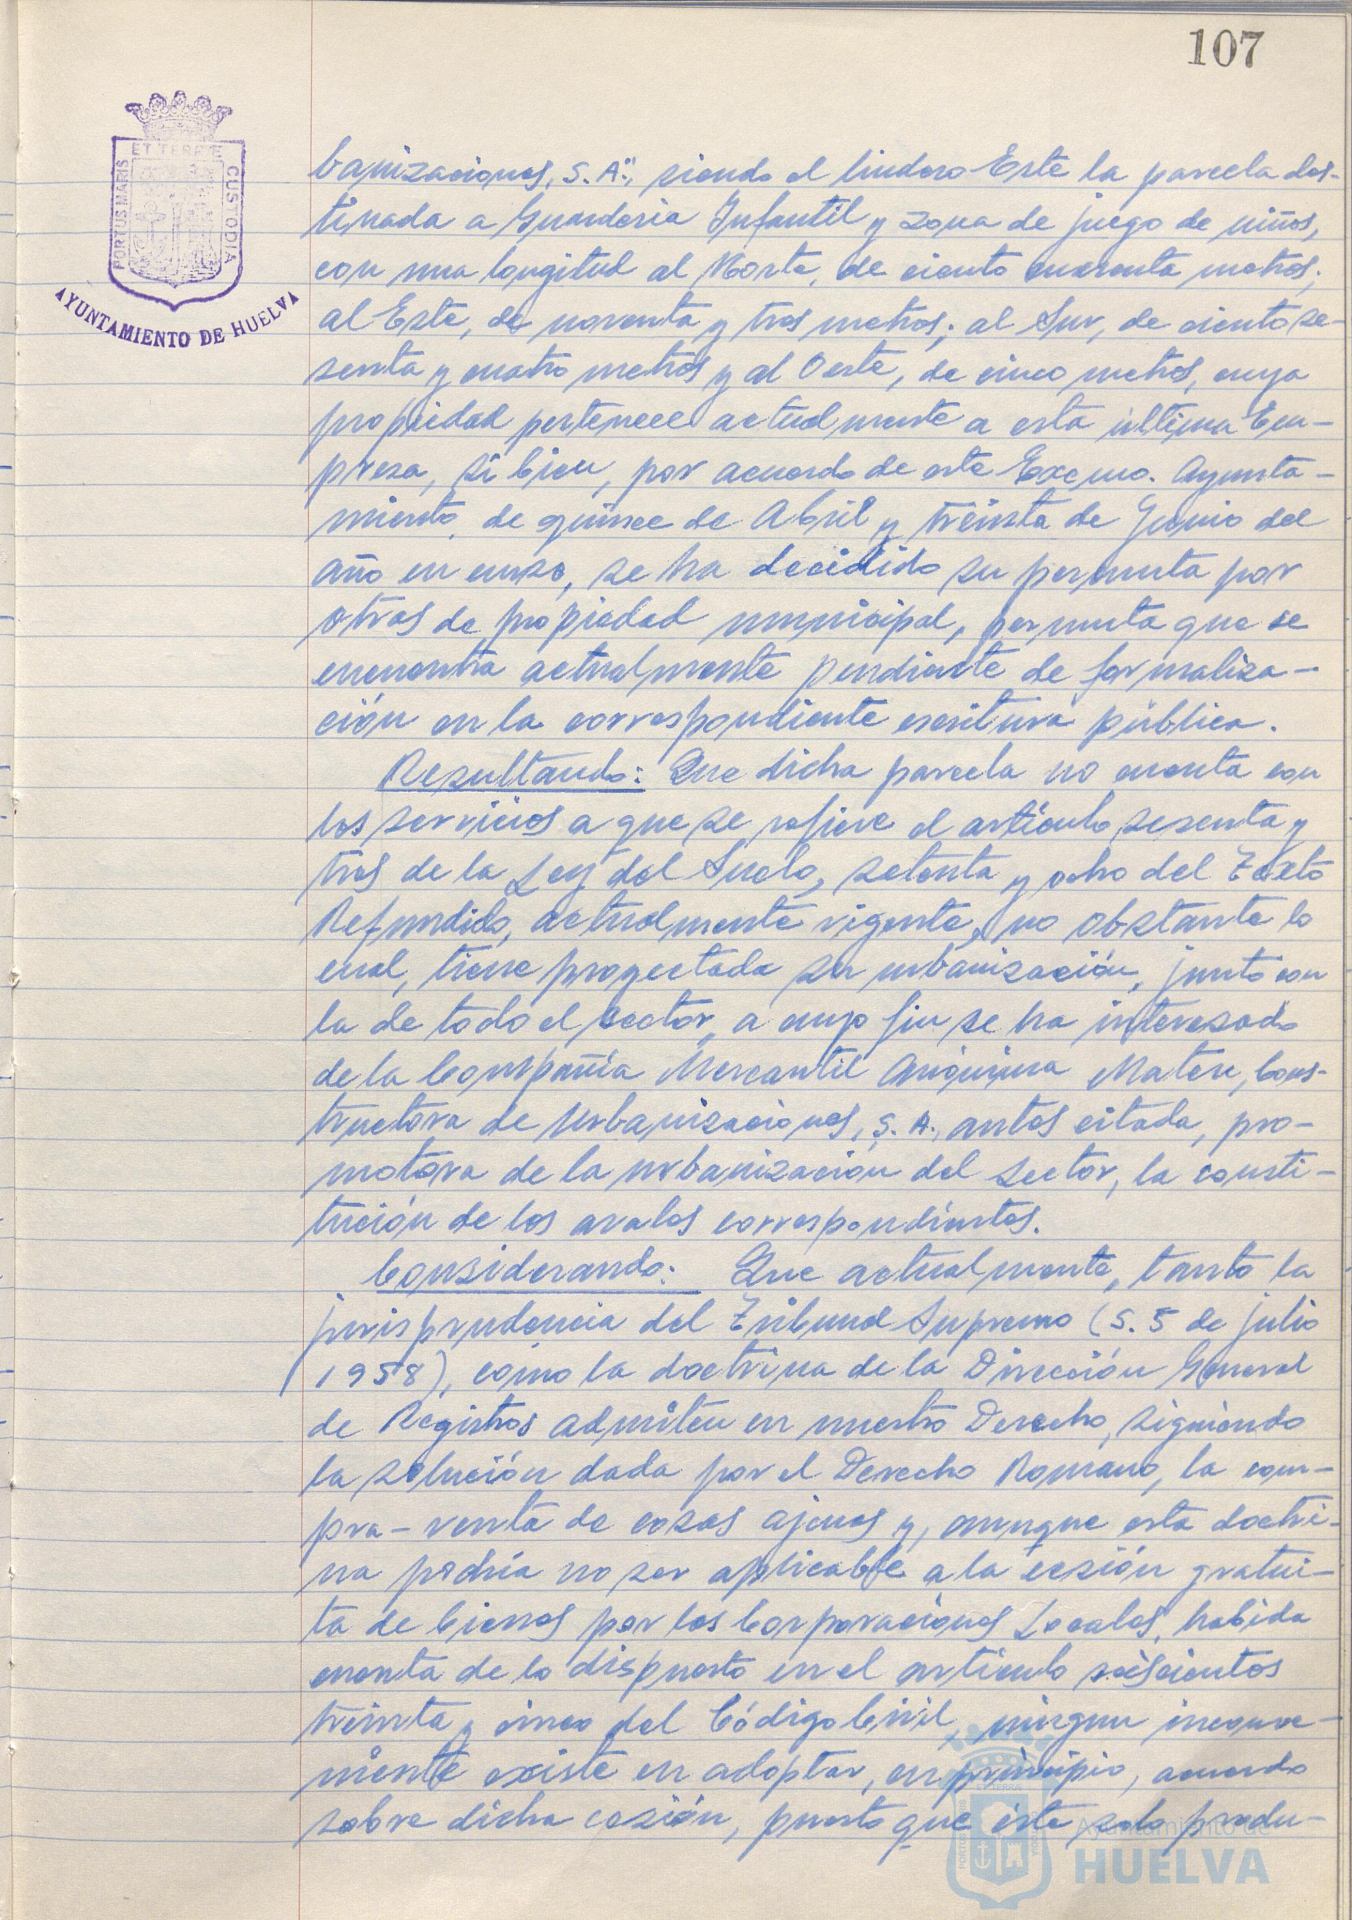 107
ET TERRE
PORTUS MARIS
CUSTODIA
AYUNTAMIENTO DE HUELVA
banizaciones, S.A", siendo el lindero Este la parcela des-
tinada a Guardería Infantil y zona de juego de niños,
con una longitud al Norte, de ciento cuarenta metros;
al Este, de noventa y tres metros; al Sur, de ciento se-
senta y cuatro metros y al Oeste, de cinco metros, cuya
propiedad pertenece actualmente a esta última Em-
presa, si bien, por acuerdo de este Excmo. Ayunta-
miento, de quince de Abril y treinta de Junio del
año en curso, se ha decidido su permuta por
otras de propiedad municipal, permuta que se
encuentra actualmente pendiente de formaliza-
ción en la correspondiente escritura pública.
Resultando: Que dicha parcela no cuenta con
los servicios a que se refiere el artículo sesenta y
tres de la Ley del Suelo, setenta y ocho del Texto
Refundido, actualmente vigente, no obstante lo
cual, tiene proyectada su urbanización, junto con
la de todo el sector, a cuyo fin se ha interesado
de la Compañía Mercantil Anónima Matere, Cons-
tructora de Urbanizaciones, S.A., antes citada, pro-
motora de la urbanización del sector, la consti-
tución de los avales correspondientes.
Considerando: Que actualmente, tanto la
jurisprudencia del Tribunal Supremo (S. 5 de julio
1958), como la doctrina de la Dirección General
de Registros admiten en nuestro Derecho, siguiendo
la solución dada por el Derecho Romano, la com-
pra-venta de cosas ajenas y, aunque esta doctri-
na podría no ser aplicable a la cesión gratui-
ta de bienes por las Corporaciones Locales, habida
cuenta de lo dispuesto en el artículo seiscientos
treinta y cinco del Código Civil, ningun inconve-
niente existe en adoptar, en principio, acuerdo
sobre dicha cesión, puesto que éste solo produ-
Ayuntamiento de
HUELVA